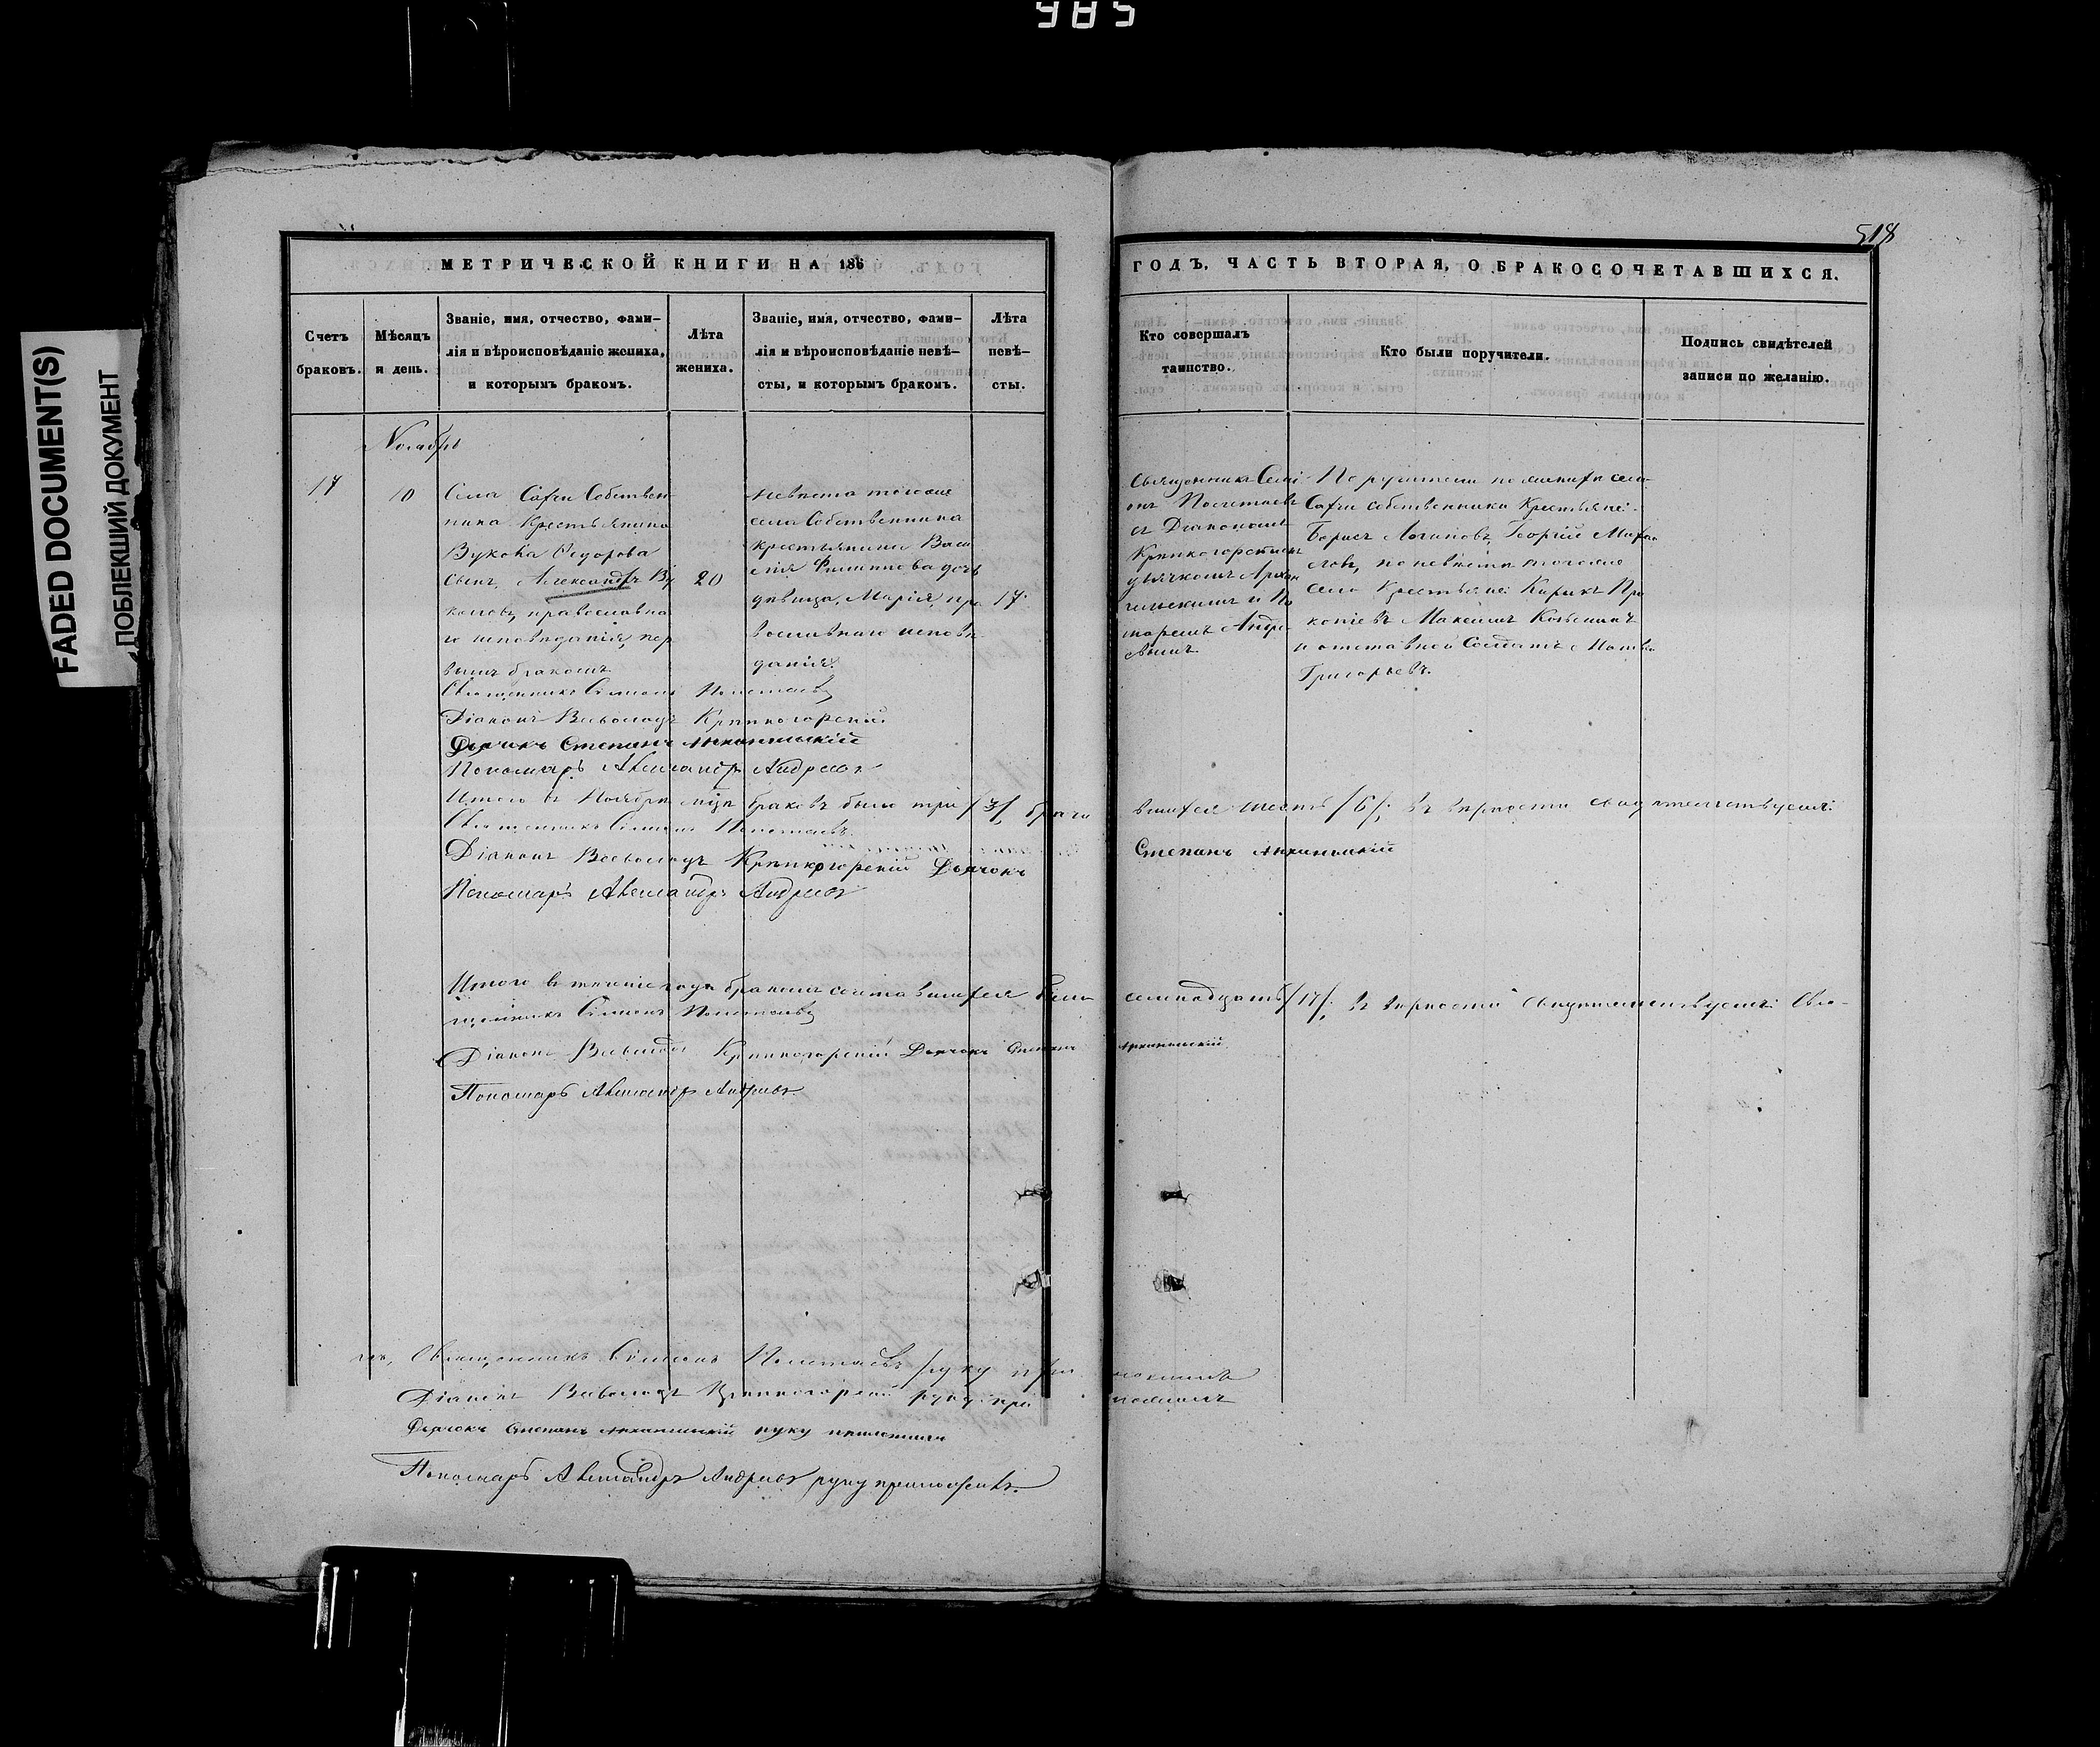 985
FADED DOCUMENT(S)
ПОБЛЕКШИЙ ДОКУМЕНТ
518
МЕТРИЧЕСКОЙ КНИГИ НА 186
Счетъ браковъ.
Мѣсяцъ и день.
Званіе, имя, отчество, фами-
лія и вѣроисповѣданіе жениха,
и которымъ бракомъ.
Лѣта жениха.
Званіе, имя, отчество, фами-
лія и вѣроисповѣданіе невѣ-
сты, и которымъ бракомъ.
Лѣта невѣ-
сты.
ГОДЪ, ЧАСТЬ ВТОРАЯ, О БРАКОСОЧЕТАВШИХСЯ.
Кто совершалъ
таинство.
Кто были поручители.
Подпись свидѣтелей
записи по желанію.
Ноябрь
17
10
Села Собствен
ника Крестьянина
Вукола Ѳедорова
сынъ, Александръ Ву
коловъ, православна
го исповѣданія, пер
вымъ бракомъ
20
невѣста тогоже
села Собственника
крестьянина Васи
лія Филиппова дочь
дѣвица, Марія, пра
вославнаго исповѣ
данія.
17
Священникъ Симе
онъ
съ Діакономъ
Крѣпкогорскимъ
дьячкомъ Архан
гельскимъ и По
номаремъ Андре
евымъ
Поручители по женихѣ села
собственники Крестьяне:
Борисъ Логиновъ, Георгій
по невѣстѣ тогоже
села Крестьяне: Кирикъ Про
копіевъ Максимъ Козьминъ
и отставной Солдатъ Матвѣй
Григорьевъ.
Священникъ Симеонъ
Діаконъ Всеволодъ Крѣпкогорскій
Дьячокъ Степанъ Архангельскій
Пономарь Александръ Андреевъ
Итого въ Ноябрѣ мцѣ браковъ было три /3/, брачи
вшихся шесть /6/; въ вѣрности свидѣтельствуемъ:
Священникъ Симеонъ
Діаконъ Всеволодъ Крѣпкогорскій Дьячокъ
Степанъ Архангельскій
Пономарь Александръ Андреевъ
Итого въ теченіе года бракомъ сочетавшихся было
семнадцать /17/; въ вѣрности свидѣтельствуемъ: Свя-
щенникъ Симеонъ
Діаконъ Всеволодъ Крѣпкогорскій Дьячокъ Степанъ
Архангельскій
Пономарь Александръ Андреевъ
Священникъ Симеонъ руку при
ложилъ
Діаконъ Всеволодъ Крѣпкогорскій руку при
ложилъ
Дьячокъ Степанъ Архангельскій руку приложилъ
Пономарь Александръ Андреевъ руку приложилъ.